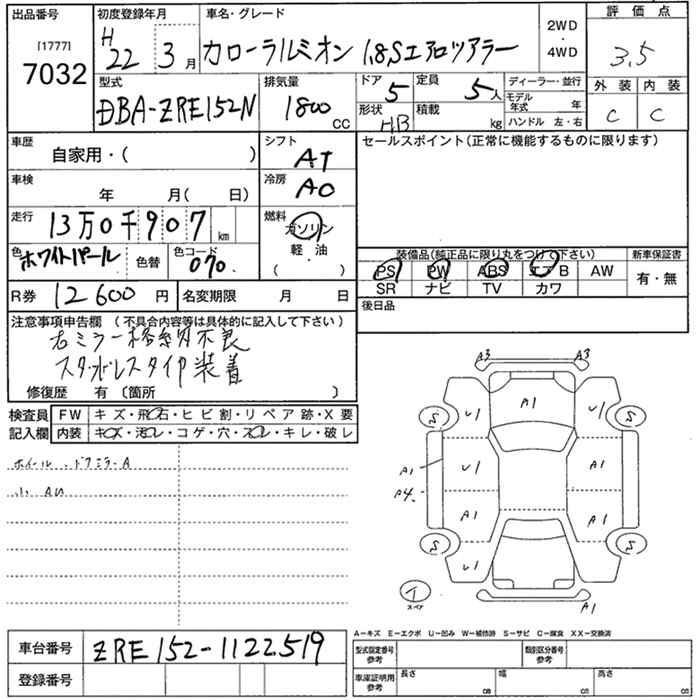 出品番号 初度登録年月 車名・グレード 評価点
[1777]
7032
H 22 年 3 月 カローラルミオン 1.8Sエアロツアラー 2WD・4WD 3.5
型式 排気量 ドア 5 定員 5人 ディーラー・並行 外装 内装
DBA-ZRE152N 1800 CC 形状 HB 積載 kg モデル年式 年 C C
ハンドル 左・右
車歴 シフト セールスポイント(正常に機能するものに限ります)
自家用・( ) AT
車検 冷房
年 月( 日) AC
走行 燃料
13万0千907 km ガソリン・軽油
色 ホワイトパール 色替 色コード 070 ( )
装備品(純正品に限り丸をつけ下さい) 新車保証書
PS PW ABS エアB AW 有・無
SR ナビ TV カワ
R券 12600円 名変期限 月 日 後日品
注意事項申告欄 (不具合内容等は具体的に記入して下さい)
右ミラー格納不良
スタッドレスタイヤ装着
修復歴 有 〔箇所 〕
検査員 FW キズ・飛石・ヒビ割・リペア跡・X要
記入欄 内装 キズ・汚レ・コゲ・穴・スレ・キレ・破レ
ホイール、ドアミラーA
小AU
A3 A3
A1
U1 U1
S S
U1 A1
A1
A4
A1 A1
S S
U1 U1
スペア
A1
A−キズ E−エクボ U−凹み W−補修跡 S−サビ C−腐食 XX−交換済
車台番号 ZRE152-1122519
登録番号
型式指定番号 参考 類別区分番号 参考
車庫証明用 参考 長さ cm 幅 cm 高さ cm